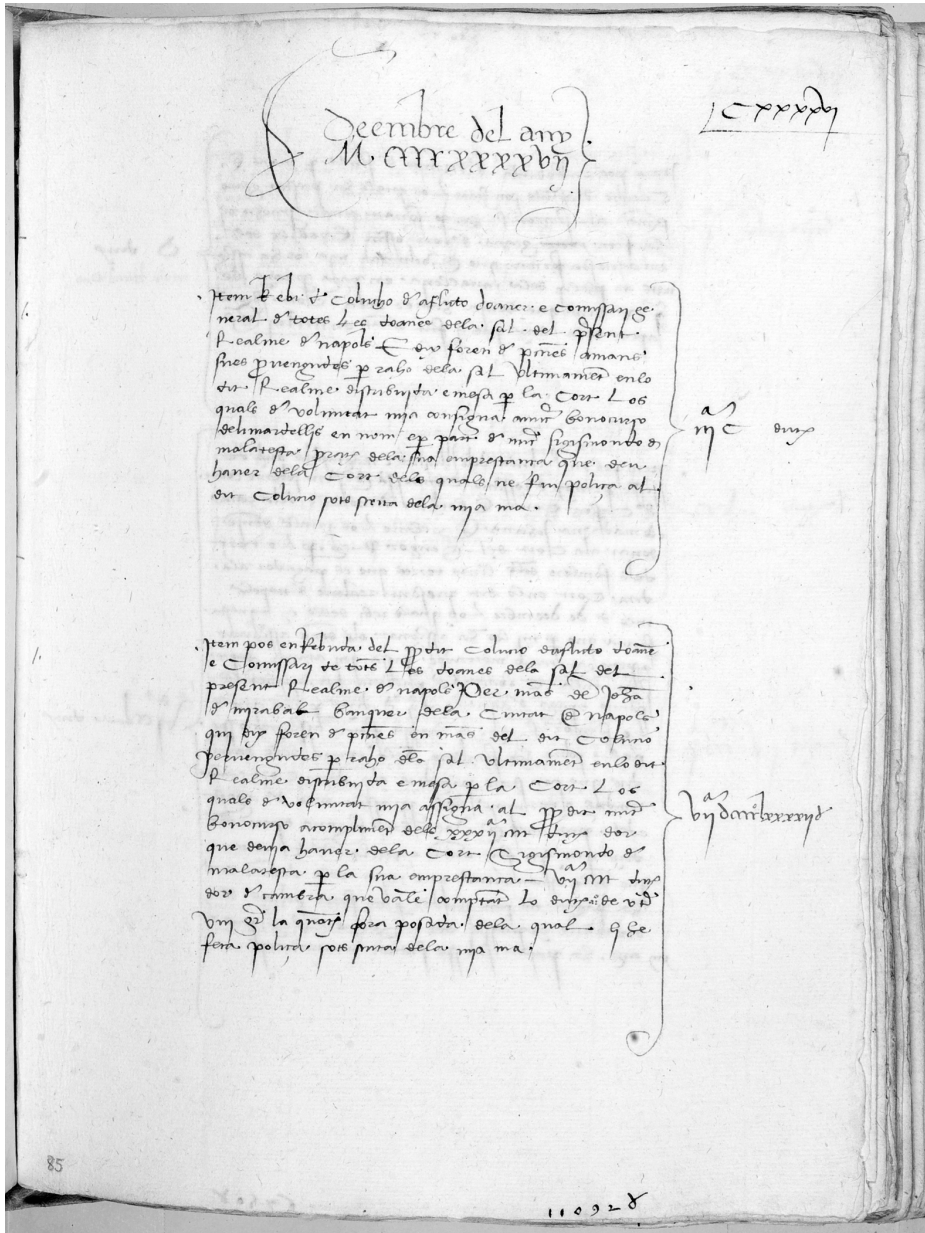 LCxxxxvi
Deembre del any
M. CCCCxxxxvij
Item Rebi de Coluccio d aflicto doaner e Comissari ge
neral de totes les doanes dela sal del present
Realme de napols E diu foren de pecunies amans
sues pervengudes per raho dela sal ultimament en lo
dit Realme distribuida e mesa per la Cort Los
quals de voluntat mia consigna a micer bonocurso
en nom e per part de micer sigismondo de
malatesta per raho dela sua emprestança que deu
haver dela Cort dels quals ne fiu poliça al
dit Colucio sots scrita dela mia ma.
iij C duc
Item pos en Rebuda del prop dit Colucio daflicto doaner
e Comissari de totes les doanes dela sal del
present Realme de napols Per mans de Joha
de mirabal banquer dela Ciutat de Napols
qui dix foren de pecunies en mans del dit Colucio
pervengudes per raho dela sal ultimament en lo dit
Realme distribuida e mesa per la Cort Los
quals de voluntat mia assigna al prop dit micer
bonocurso a compliment dels xxxij M duc dor
que devia haver dela Cort Sigismondo de
malatesta per la sua emprestança vij M duc
dor de cambra que valen comptant lo duc de
viij gr la quantitat fora posada dela qual li he
feta poliça sots scrita dela mia ma.
85
11092